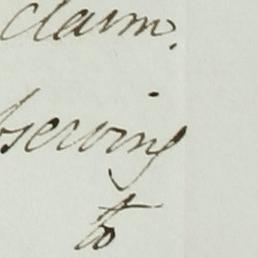 claim.
bserving
to